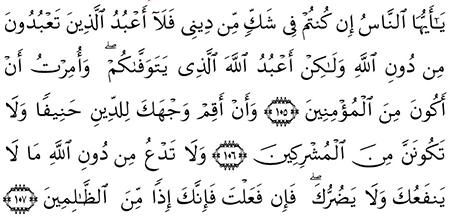 يَٰٓأَيُّهَا ٱلنَّاسُ إِن كُنتُمْ فِى شَكٍّ مِّن دِينِى فَلَآ أَعْبُدُ ٱلَّذِينَ تَعْبُدُونَ
مِن دُونِ ٱللَّهِ وَلَٰكِنْ أَعْبُدُ ٱللَّهَ ٱلَّذِى يَتَوَفَّىٰكُمْ ۖ وَأُمِرْتُ أَنْ
أَكُونَ مِنَ ٱلْمُؤْمِنِينَ ﴿١٠٥﴾ وَأَنْ أَقِمْ وَجْهَكَ لِلدِّينِ حَنِيفًا وَلَا
تَكُونَنَّ مِنَ ٱلْمُشْرِكِينَ ﴿١٠٦﴾ وَلَا تَدْعُ مِن دُونِ ٱللَّهِ مَا لَا
يَنفَعُكَ وَلَا يَضُرُّكَ ۖ فَإِن فَعَلْتَ فَإِنَّكَ إِذًا مِّنَ ٱلظَّٰلِمِينَ ﴿١٠٧﴾